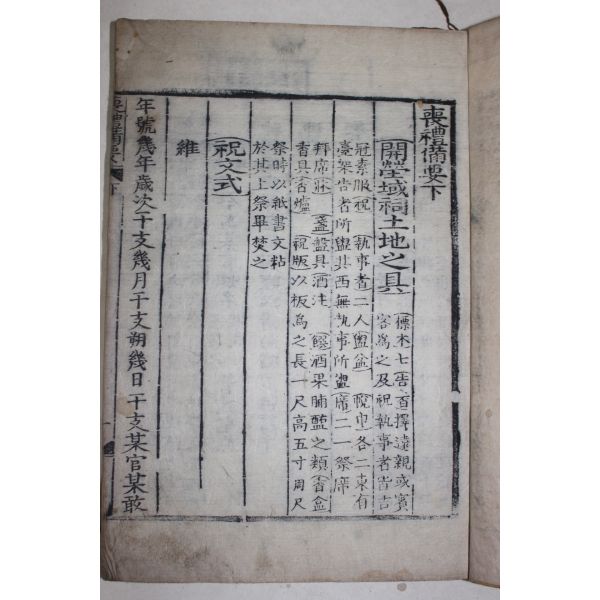 喪禮備要下
開塋域祠土地之具
標木七 告者擇遠親或賓
客爲之 及祝執事者皆吉
冠素服 祝 執事者二人 盥盆 帨巾各二 東有
臺架告者所盥 其西無 執事所盥 席二 一祭席
拜席 牀 盞盤具 酒注 饌酒果脯醢之類 香盒
香具 香爐 祝版以板爲之 長一尺高五寸周尺
祭時以紙書文粘
於其上 祭畢焚之
祝文式
維
年號幾年歲次干支幾月干支朔幾日干支某官某敢
喪禮備要 下 一